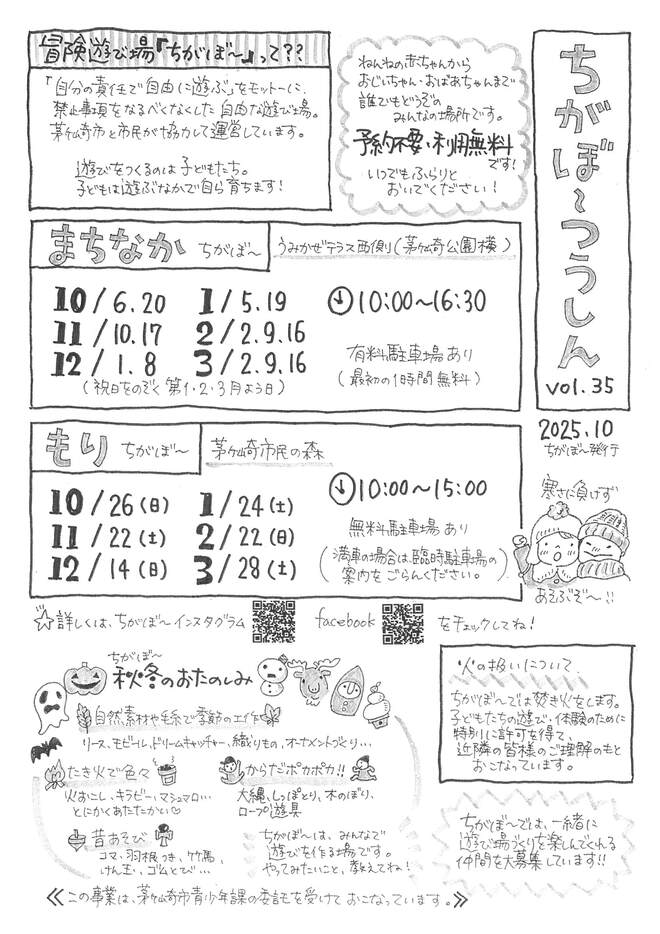 冒険遊び場「ちがぼ〜」って??
「自分の責任で自由に遊ぶ」をモットーに、
禁止事項をなるべくなくした自由な遊び場。
茅ヶ崎市と市民が協力して運営しています。
遊びをつくるのは子どもたち。
子どもは遊ぶなかで自ら育ちます!
ねんねの赤ちゃんから
おじいちゃん・おばあちゃんまで
誰でもどうぞの
みんなの場所です。
予約不要・利用無料
です!
いつでもふらりと
おいでください!
ちがぼ〜つうしん
vol.35
2025.10
ちがぼ〜発行
まちなか ちがぼ〜
うみかぜテラス西側(茅ヶ崎公園横)
10/6.20 1/5.19
11/10.17 2/2.9.16
12/1.8 3/2.9.16
(祝日をのぞく第1・2・3月よう日)
10:00〜16:30
有料駐車場あり
(最初の1時間無料)
もり ちがぼ〜
茅ヶ崎市民の森
10/26(日) 1/24(土)
11/22(土) 2/22(日)
12/14(日) 3/28(土)
10:00〜15:00
無料駐車場あり
(満車の場合は臨時駐車場の
案内をごらんください。)
寒さに負けず
あそぶぞ〜!!
☆詳しくは、ちがぼ〜インスタグラム facebook をチェックしてね!
ちがぼ〜
秋冬のおたのしみ
自然素材や毛糸で季節の工作
リース、モビール、ドリームキャッチャー、織りもの、オーナメントづくり…
たき火で色々
火おこし、キラピー、マシュマロ…
とにかくあたたかい♡
からだポカポカ!!
大縄、しっぽとり、木のぼり、
ロープ遊具
昔あそび
コマ、羽根つき、竹馬、
けん玉、ゴムとび…
ちがぼ〜は、みんなで
遊びを作る場です。
やってみたいこと、教えてね!
火の扱いについて
ちがぼ〜では焚き火をします。
子どもたちの遊び・体験のために
特別に許可を得て、
近隣の皆様のご理解のもと
おこなっています。
ちがぼ〜では、一緒に
遊び場づくりを楽しんでくれる
仲間を大募集しています!!
≪この事業は、茅ヶ崎市青少年課の委託を受けておこなっています。≫